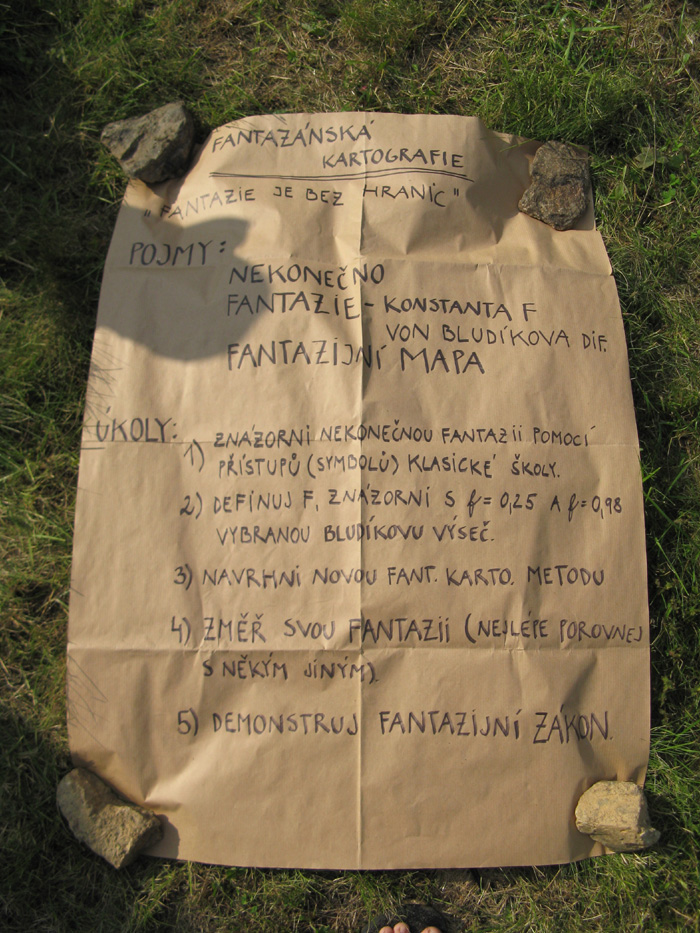 FANTAZÁNSKÁ
KARTOGRAFIE
"FANTAZIE JE BEZ HRANIC"
POJMY:
NEKONEČNO
FANTAZIE - KONSTANTA F
VON BLUDÍKOVA DIF.
FANTAZIJNÍ MAPA
ÚKOLY:
1) ZNÁZORNI NEKONEČNOU FANTAZII POMOCÍ
PŘÍSTUPŮ (SYMBOLŮ) KLASICKÉ ŠKOLY.
2) DEFINUJ F, ZNÁZORNI S f = 0,25 A f = 0,98
VYBRANOU BLUDÍKOVU VÝSEČ.
3) NAVRHNI NOVOU FANT. KARTO. METODU
4) ZMĚŘ SVOU FANTAZII (NEJLÉPE POROVNEJ
S NĚKÝM JINÝM).
5) DEMONSTRUJ FANTAZIJNÍ ZÁKON.